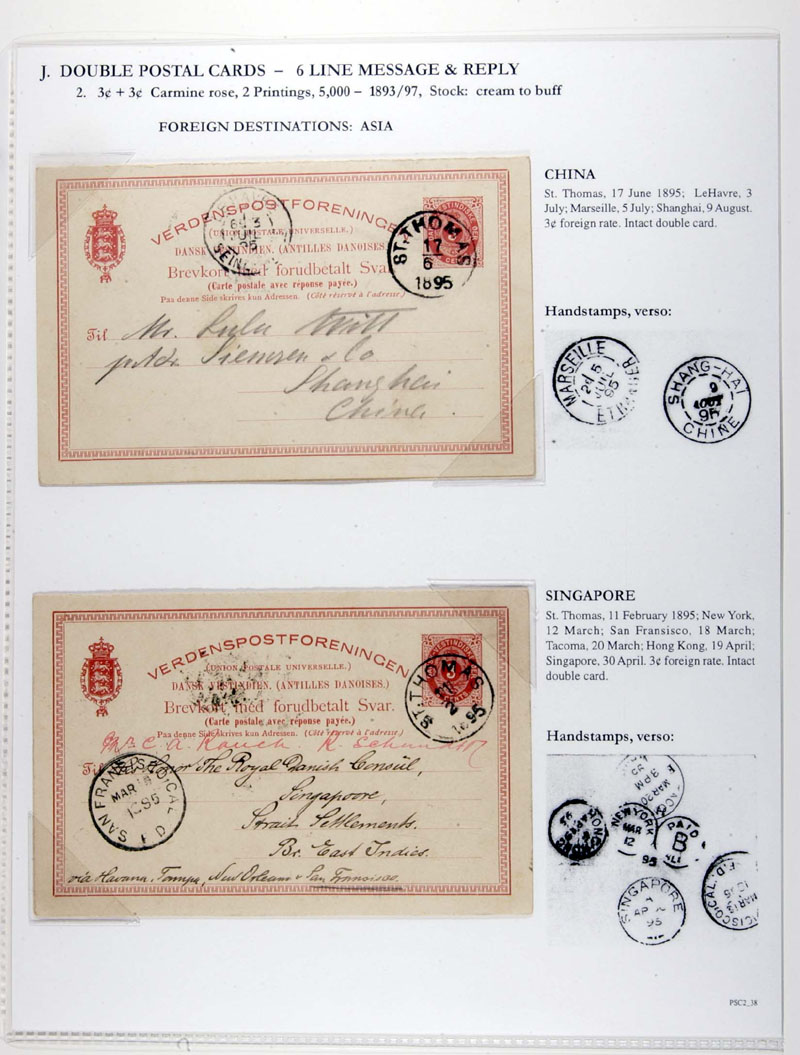 J. DOUBLE POSTAL CARDS – 6 LINE MESSAGE & REPLY
2. 3¢ + 3¢ Carmine rose, 2 Printings, 5,000 – 1893/97, Stock: cream to buff
FOREIGN DESTINATIONS: ASIA
CHINA
St. Thomas, 17 June 1895; LeHavre, 3
July; Marseille, 5 July; Shanghai, 9 August.
3¢ foreign rate. Intact double card.
VERDENSPOSTFORENINGEN
(UNION POSTALE UNIVERSELLE.)
DANSK VESTINDIEN. (ANTILLES DANOISES.)
Brevkort med forudbetalt Svar.
(Carte postale avec réponse payée.)
Paa denne Side skrives kun Adressen. (Côté réservé à l'adresse)
ST. THOMAS
17
6
1895
Til Mr. Lulu Witt
Siemssen & Co
Shanghai
China.
Handstamps, verso:
MARSEILLE
5
95
SHANG-HAI
9
AOUT
95
CHINE
SINGAPORE
St. Thomas, 11 February 1895; New York,
12 March; San Fransisco, 18 March;
Tacoma, 20 March; Hong Kong, 19 April;
Singapore, 30 April. 3¢ foreign rate. Intact
double card.
VERDENSPOSTFORENINGEN
(UNION POSTALE UNIVERSELLE.)
DANSK VESTINDIEN. (ANTILLES DANOISES.)
Brevkort med forudbetalt Svar.
(Carte postale avec réponse payée.)
Paa denne Side skrives kun Adressen. (Côté réservé à l'adresse)
3
CENTS
ST. THOMAS
1895
Mr C. A. Rauch
Til
The Royal Danish Consul,
Singapoore,
Strait Settlements.
Br. East Indies.
via Havana, Tampa, New Orleans & San Francisco.
SAN FRANCISCO, CAL
MAR 18
1895
Handstamps, verso:
MAR 20
NEW YORK
MAR
12
95
PAID
B
ALL
HONG KONG
SINGAPORE
AP
95
MAR 13
PSC2_38